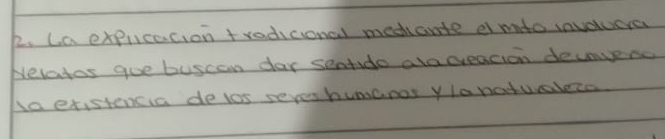 2. La explicación tradicional mediante el mito involucra
relatos que buscan dar sentido a la creación de universo
la existencia de los seres humanos y la naturaleza.